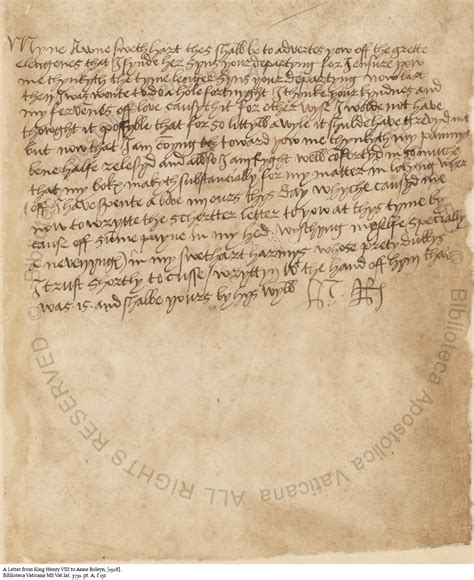 Myne awne Swethart thes shall be to advertes yow off the grette
elengenes that I fynde her syns your departyng for I ensure yow
me thynkyth the tyme lenger syns your departyng now last
then I was wonte to do a hole fortnyght I thynke your kyndnes and
my fervences off love causyth it for other wyse I wolde not have
thowght it possyble that for so littyll a wyle it shulde have grevyd me
but now that I am comyng toward yow me thynkyth my painnys
bene halfe relesyd and allso I am ryght well comfortyd in so muche
that my boke makyth substantially for my matter in lokyng wheroff
I have spente a bove iiii ours thys day whyche causyd me
now to wrytte the schortter letter to yow at thys tyme by
cause off summe payne in my hed wyschyng my selfe specially
a nevenyng in my swethart harmys whose prety dukkys
I trust shortly to cusse wryttyn w the hand off hym that
was is and shalbe yours by hys wyll
H R
© Biblioteca Apostolica Vaticana ALL RIGHTS RESERVED
A Letter from King Henry VIII to Anne Boleyn, [1528].
Biblioteca Vaticana MS Vat.lat. 3731. pt. A, f.15r.